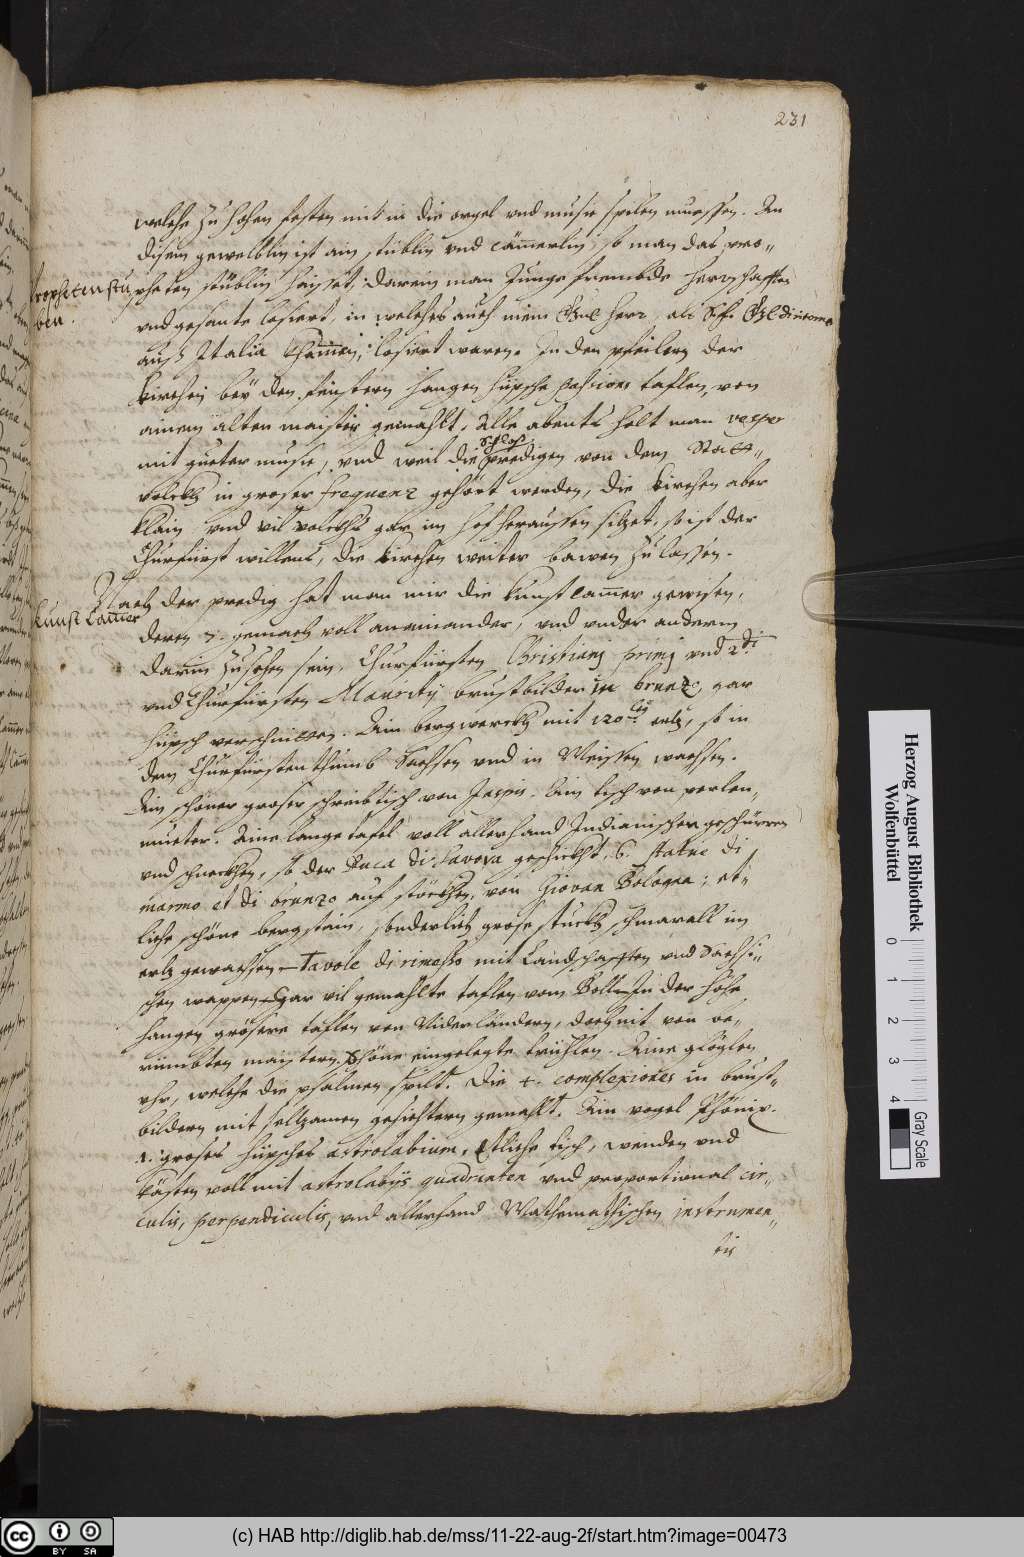 231
welche zu hohen festen mit in die orgel vnd music spilen muessen. An
disem gewelblin ist ain stüblin vnd cämerlin, so man das pro-
pheten stüblin haisset, darein man Junge frembde herrschafften
Propheten stu
ben.
vnd gesante losiert, in welches auch mein herr, als
auß Italia khamen, losiert waren. In den pfeilern der
kirchen bey den fenstern hangen hüpsche passions taflen, von
ainem alten maister gemahlt. Alle abents helt man vesper
mit gueter music, vnd weil die schlos predigen von dem Statt-
volckh in groser frequenz gehört werden, die kirchen aber
klain vnd vil volckhs gar im hof heraussen sitzet, so ist der
Churfürst willens, die kirchen weiter bawen zu lassen.
Nach der predig hat man mir die kunst camer gewisen,
Kunst Camer
deren 7. gemach voll an einander, vnd vnder anderm
darin zusehen sein, Churfürsten Christianj primj vnd 2di
vnd Churfürsten Mauritij brustbilder in brunzo, gar
hüpsch verschnitten. Ain bergwerckh mit 120 erlej ertz, so in
dem Churfürstenthumb Sachsen vnd in Meissen wachsen.
Ain schöner groser schreibtisch von Jaspis. Ain tisch von perlen-
mueter. Aine lange tafel voll allerhand Indianischer geschürren
vnd schnecken, so der Duca di Savoya geschickht, 6. statue di
marmo et di brunzo auf stöckhen, von Giovan Bologna; et-
liche schöne bergstain, sonderlich grose stuckh schmarall im
ertz gewachsen. Tavole di rimesso mit Landschafften vnd Sächsi-
schen wappen. Gar vil gemahlte taflen vom Boll. In der höhe
hangen grösere taflen von Niderländern, doch nit von be-
rümbten maistern. Schöne eingelegte trühlen. Aine glöglen
vhr, welche die psalmen spilt. Die 4. complexiones in brust-
bildern mit seltzamen gesichtern gemahlt. Ain vogel Phönix.
1. groses hüpsches astrolabium, Etliche tisch, wenden vnd
kästen voll mit astrolabijs quadranten vnd proportional cir-
culis, perpendiculis, vnd allerhand Mathematischen instrumen-
tis
Herzog August Bibliothek
Wolfenbüttel
0 1 2 3 4
Gray Scale
cc BY SA
(c) HAB http://diglib.hab.de/mss/11-22-aug-2f/start.htm?image=00473